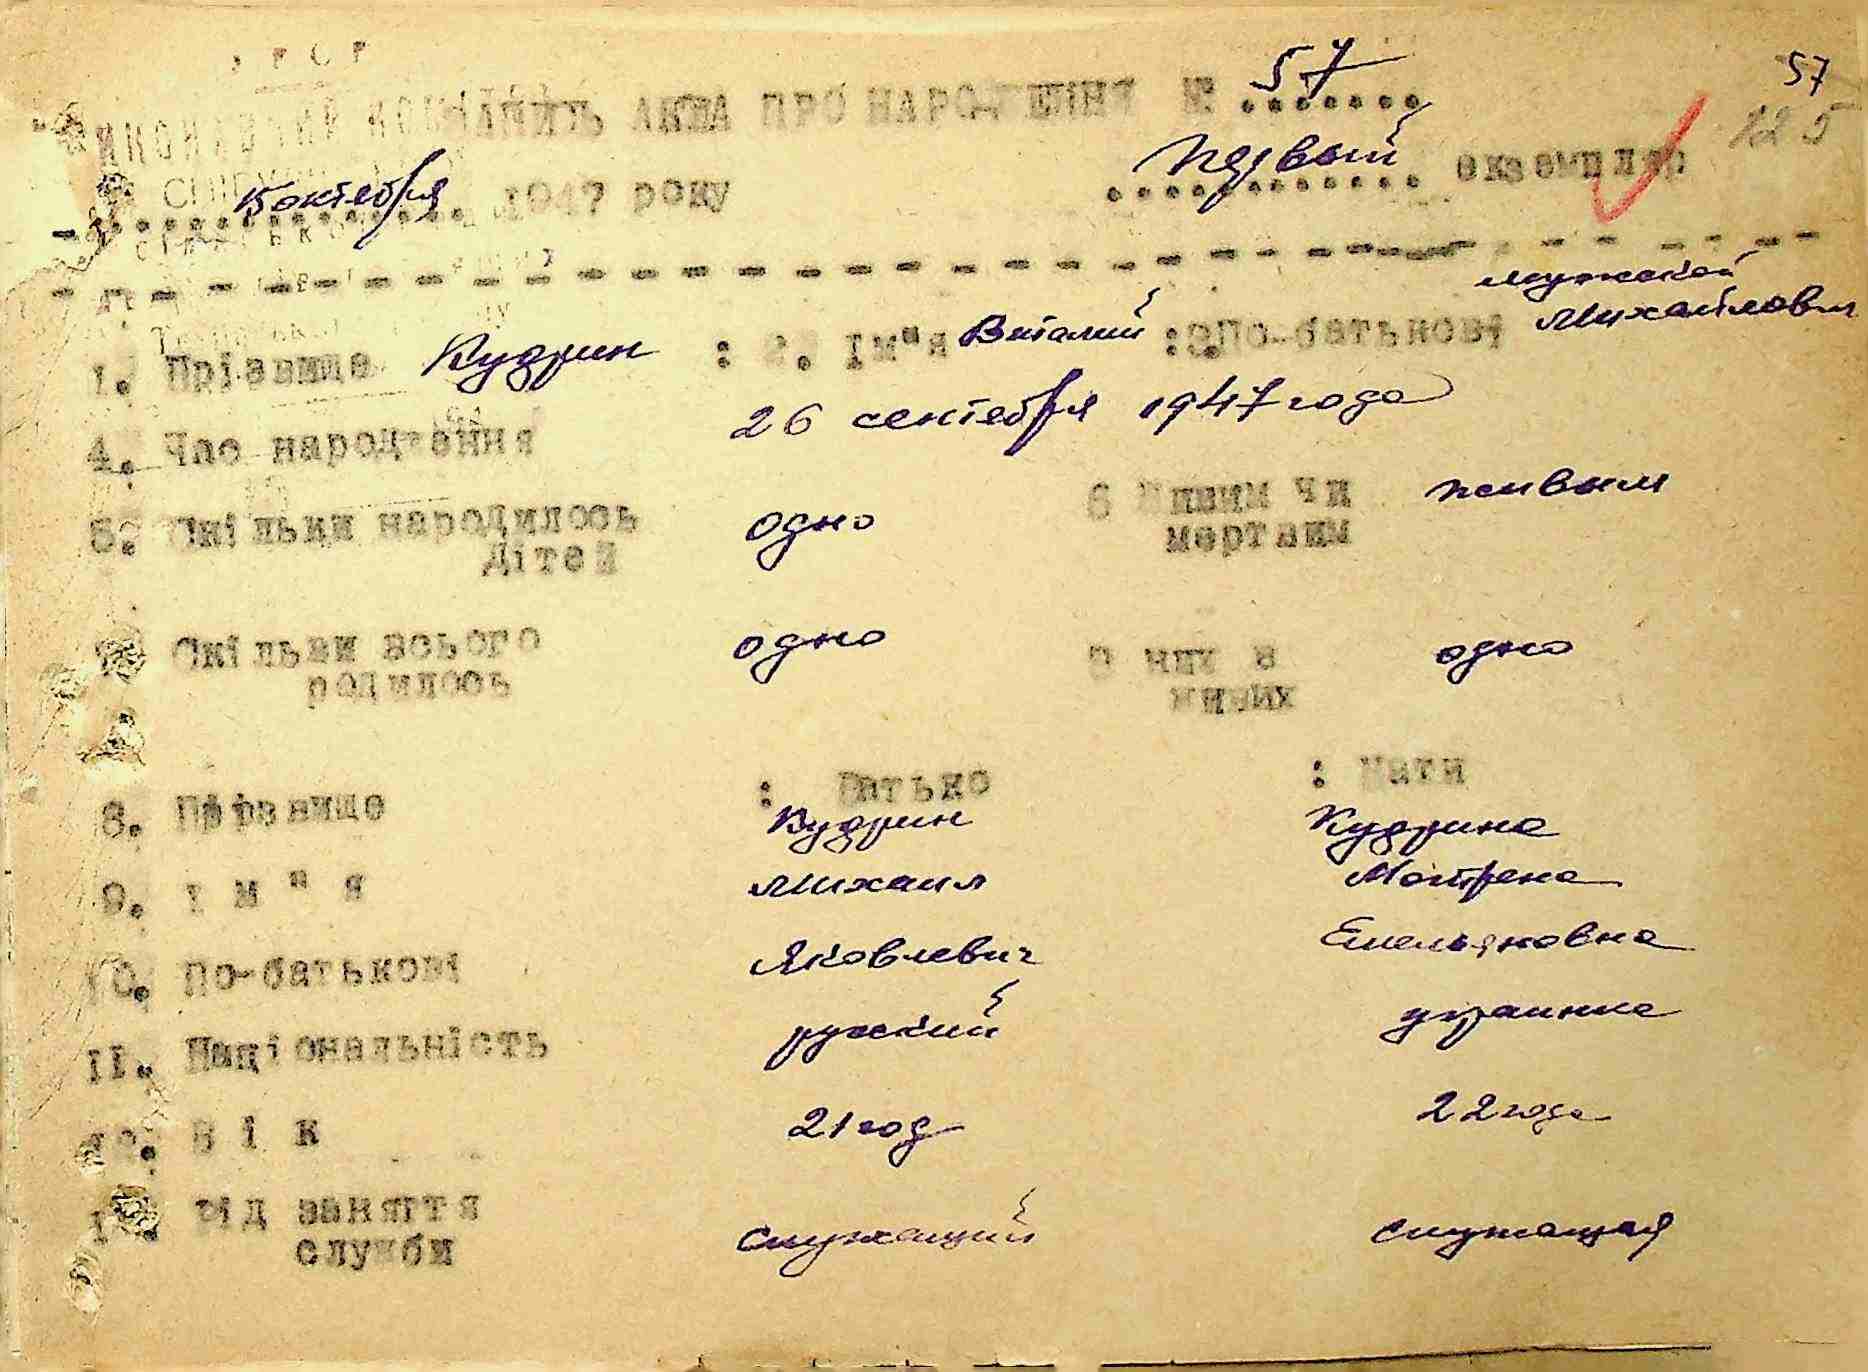 У Р С Р
57
ЗАПИС АКТА ПРО НАРОДЖЕННЯ № 57
125
15 октября 1947 року Первый екземпляр
мужской
1. Прізвище Кудрин : 2. Ім"я Виталий : 3. По-батькові Михайлович
4. Час народження 26 сентября 1947 года
5. Скільки народилось одно 6 Живим чи живым
дітей мертвим
Скільки всього одно З них в одно
родилось живих
: Батько : Мати
8. Прізвище Кудрин Кудрина
9. І м " я Михаил Мотрена
10. По-батькові Яковлевич Емельяновна
11. Національність руский украинка
12. В і к 21 год 22 года
13. Рід заняття служащий служащая
служби